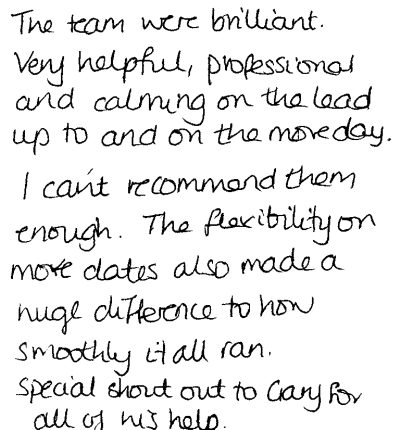 The team were brilliant.
Very helpful, professional
and calming on the lead
up to and on the move day.
I can't recommend them
enough. The flexibility on
move dates also made a
huge difference to how
smoothly it all ran.
Special shout out to Gary for
all of his help.